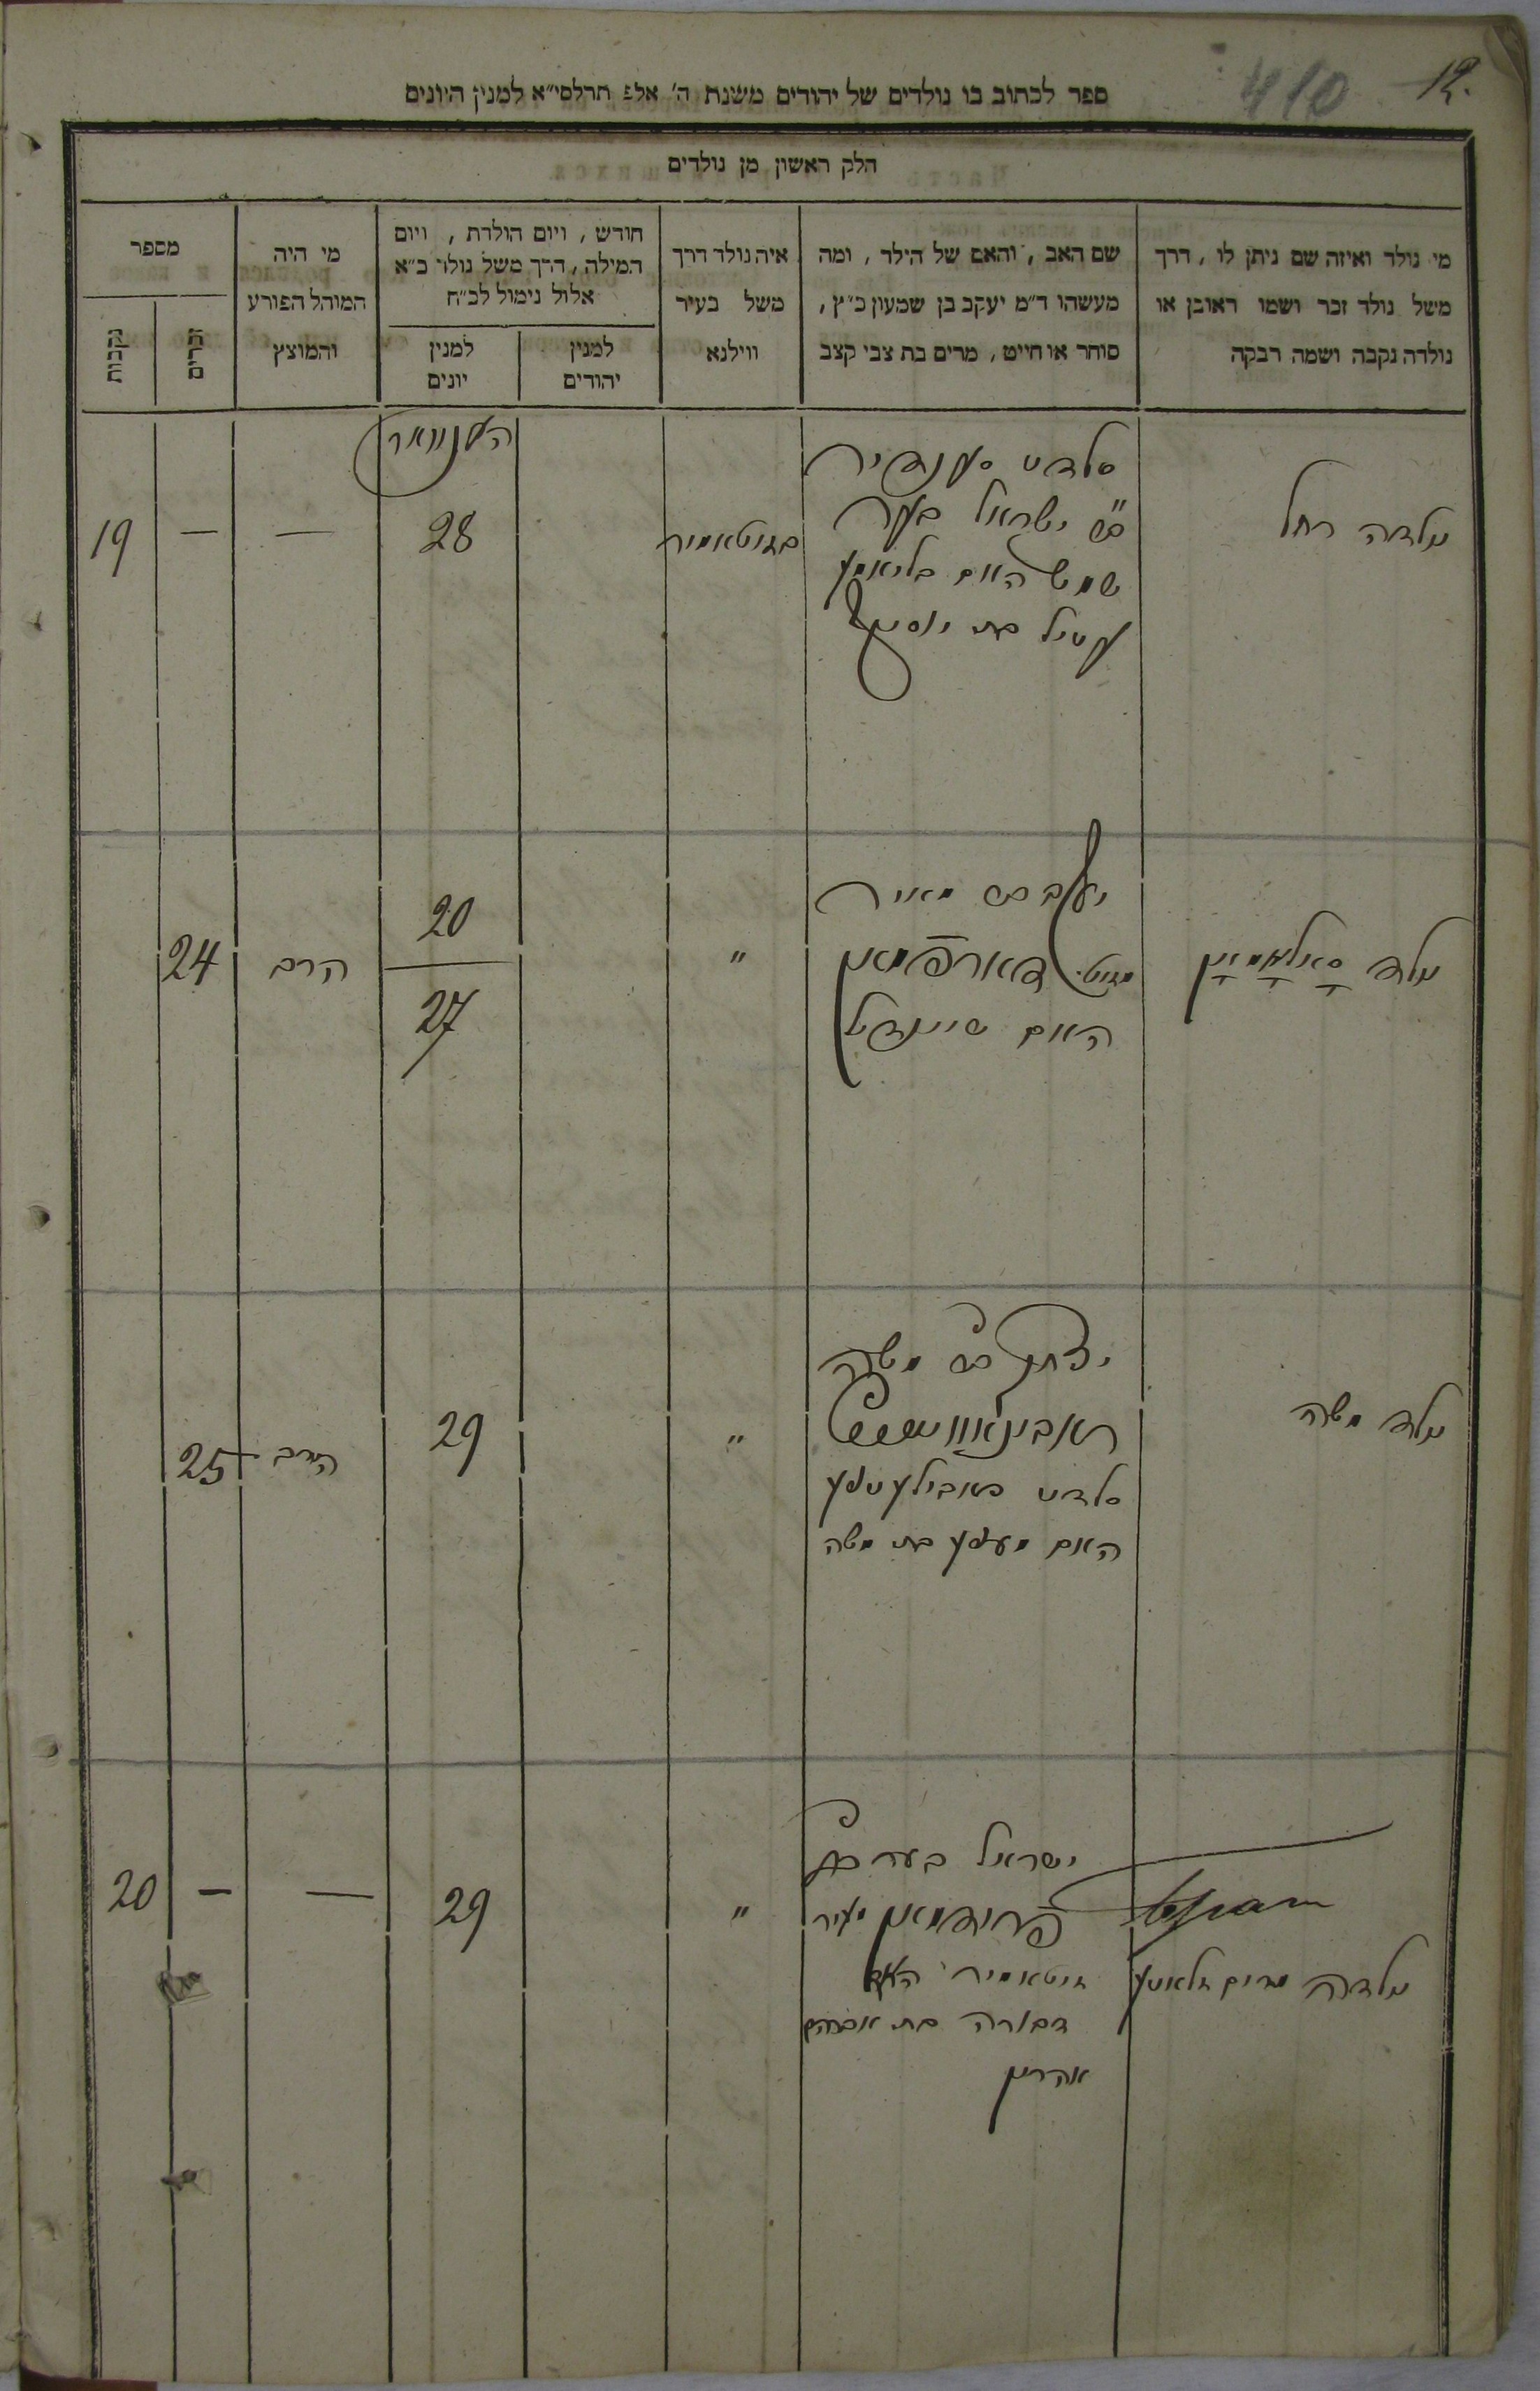 12.
410
ספר לכתוב בו נולדים של יהודים משנת ה' אלפ תרלסי״א למנין היונים
הלק ראשון מן נולדים
מי נולד ואיזה שם ניתן לו , דרך
משל נולד זכר ושמו ראובן או
נולדה נקבה ושמה רבקה
שם האב , והאם של הילד , ומה
מעשהו ד״מ יעקב בן שמעון כ״ץ ,
סוחר או חייט , מרים בת צבי קצב
איה נולד דרך
משל בעיר
ווילנא
חודש , ויום הולדת , ויום
המילה , דרך משל נולד כ״א
אלול נימול לכ״ח
למנין
יהודים
למנין
יונים
מי היה
המוהל הפורע
והמוצץ
מספר
זכרים
נקבות
נולדה רחל
סלדט
ישראל בער
שמש האם
בת יוסף
בזיטאמיר
יאנוואר
28
—
—
19
נולד
יעקב בן מאיר
דארפמאן
האם שיינדיל
״
20
27
הרב
24
נולד משה
יצחק בן משה
ראבינאוויטש
סלדט
האם בת משה
״
29
הרב
25
נולדה מרים
ישראל בער בן
פרידמאן
זיטאמיר האם
דבורה בת אברהם
אהרון
״
29
—
—
20